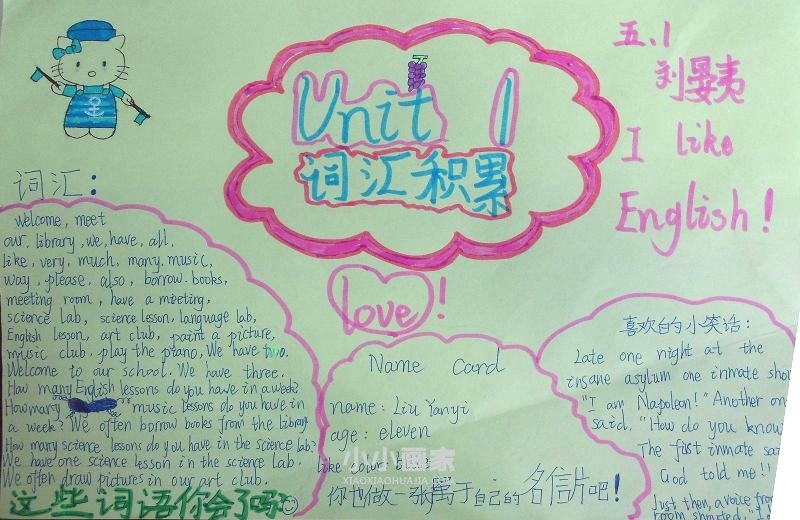 五.1
刘晏夷
I like
English!
Unit 1
词汇积累
love!
词汇:
welcome, meet
our, library, we, have, all,
like, very, much, many, music,
way, please, also, borrow, books,
meeting room, have a meeting,
science lab, science lesson, language lab,
English lesson, art club, paint a picture,
music club. play the piano, We have two.
Welcome to our school. We have three.
How many English lessons do you have in a week?
How many music lessons do you have in
a week? We often borrow books from the library
How many science lessons do you have in the science lab?
We have one science lesson in the science lab.
We often draw pictures in our art club.
这些词语你会了吗?
Name Card
name: Liu Yanyi
age: eleven
like
小小画家
XIAOXIAOHUAJIA.COM
你也做一张属于自己的名信片吧!
喜欢的小笑话:
Late one night at the
insane asylum one inmate shou
"I am Napoleon!" Another on
said. "How do you know
The first inmate sai
God told me!!
Just then, a voice from
room shouted, "I